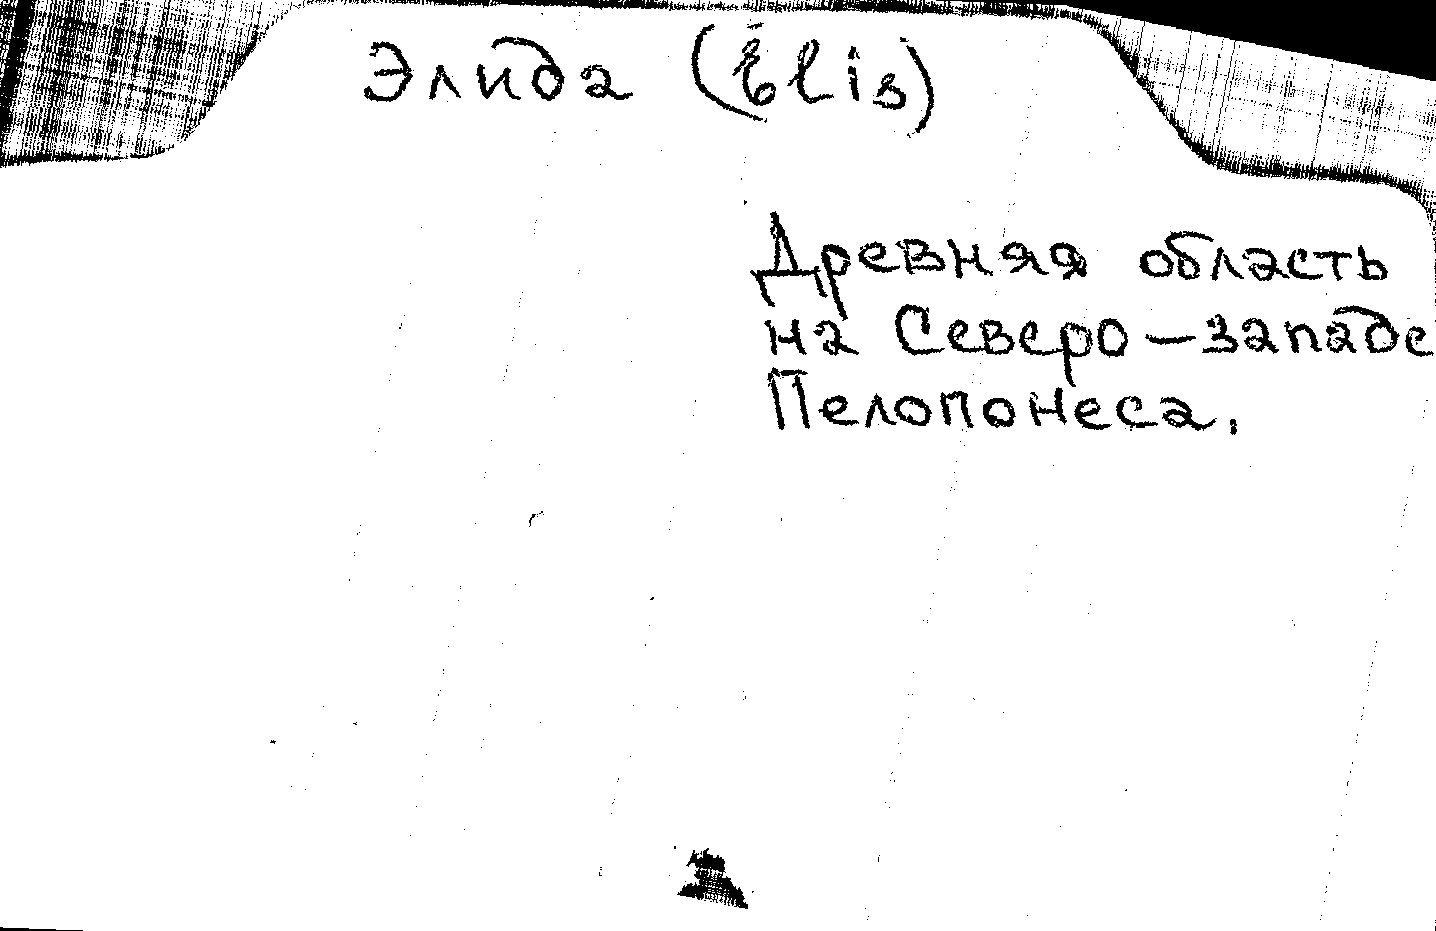 Элида (Ēlis)
Древняя область
на Северо-западе
Пелопонеса.